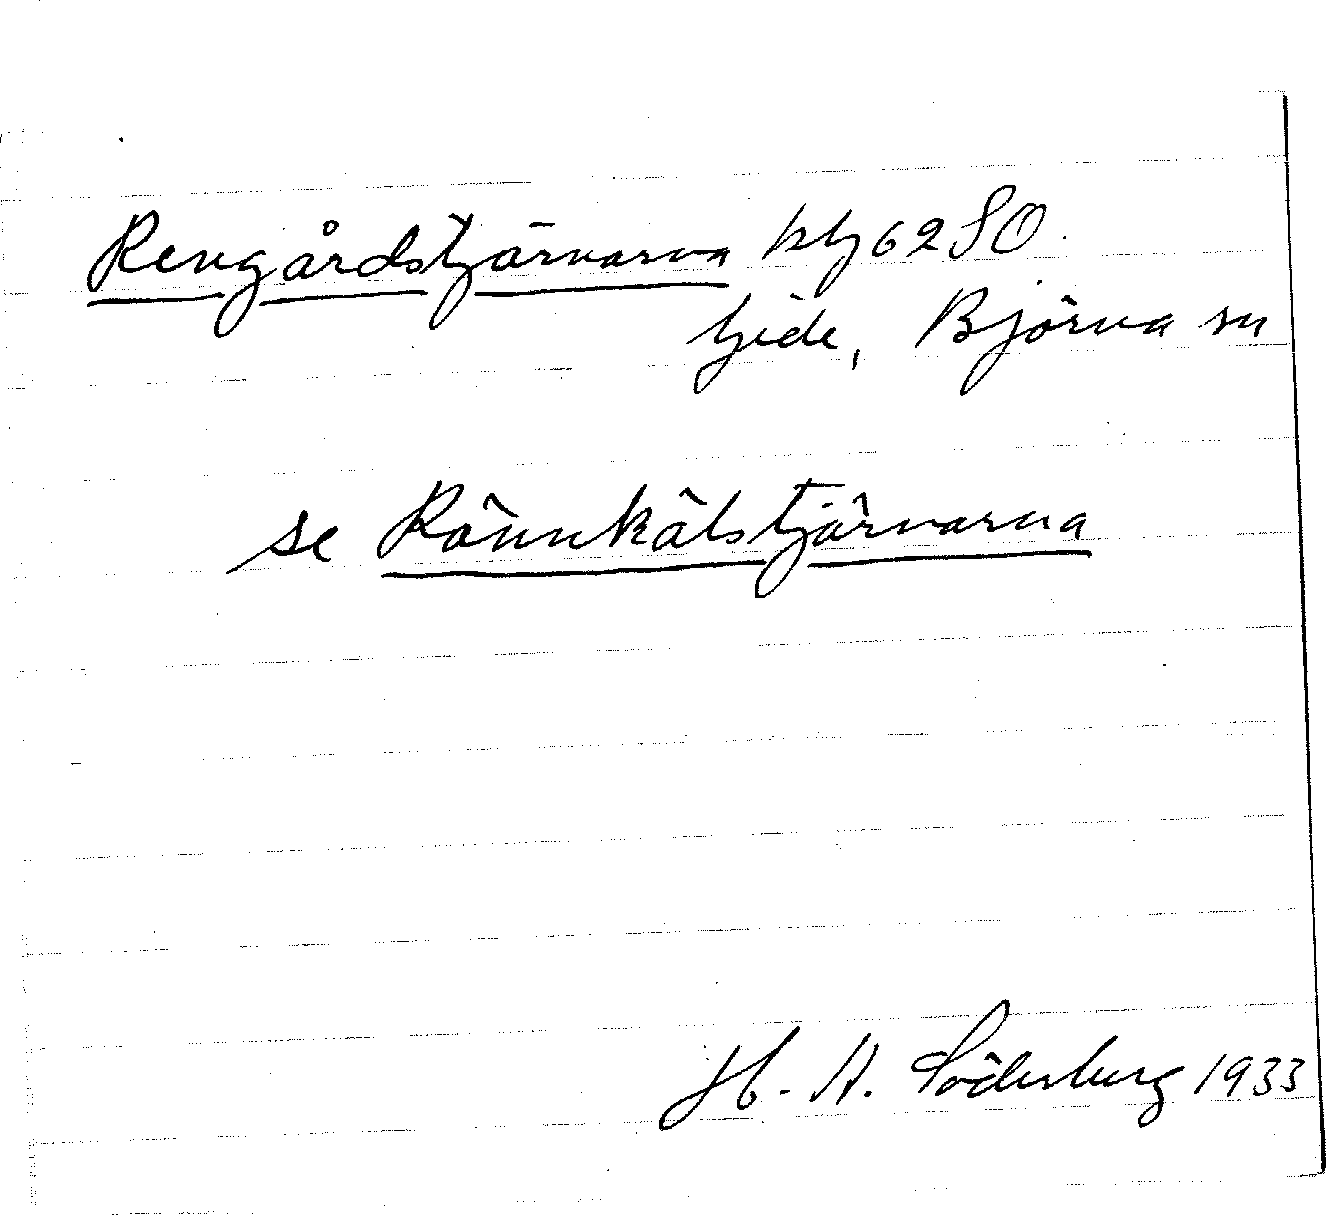 Rengårdstjärnarna kbg 62 SO.
Gide, Björna sn
se Rönnkälstjärnarna
H. A. Söderberg 1933